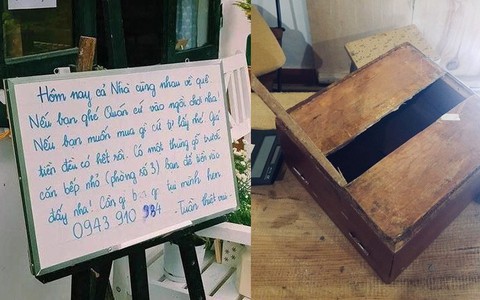 Hôm nay cả Nhà cùng nhau về quê
Nếu bạn ghé Quán cứ vào ngồi chơi nha!
Nếu bạn muốn mua gì cứ tự lấy nhé. Giá
tiền đều có hết rồi. Có một thùng gỗ trước
căn bếp nhỏ (phòng số 3) bạn để tiền vào
đấy nha! Cần gì bạn gọi tụi mình hen
0943 910 984 - Tuấn thiết